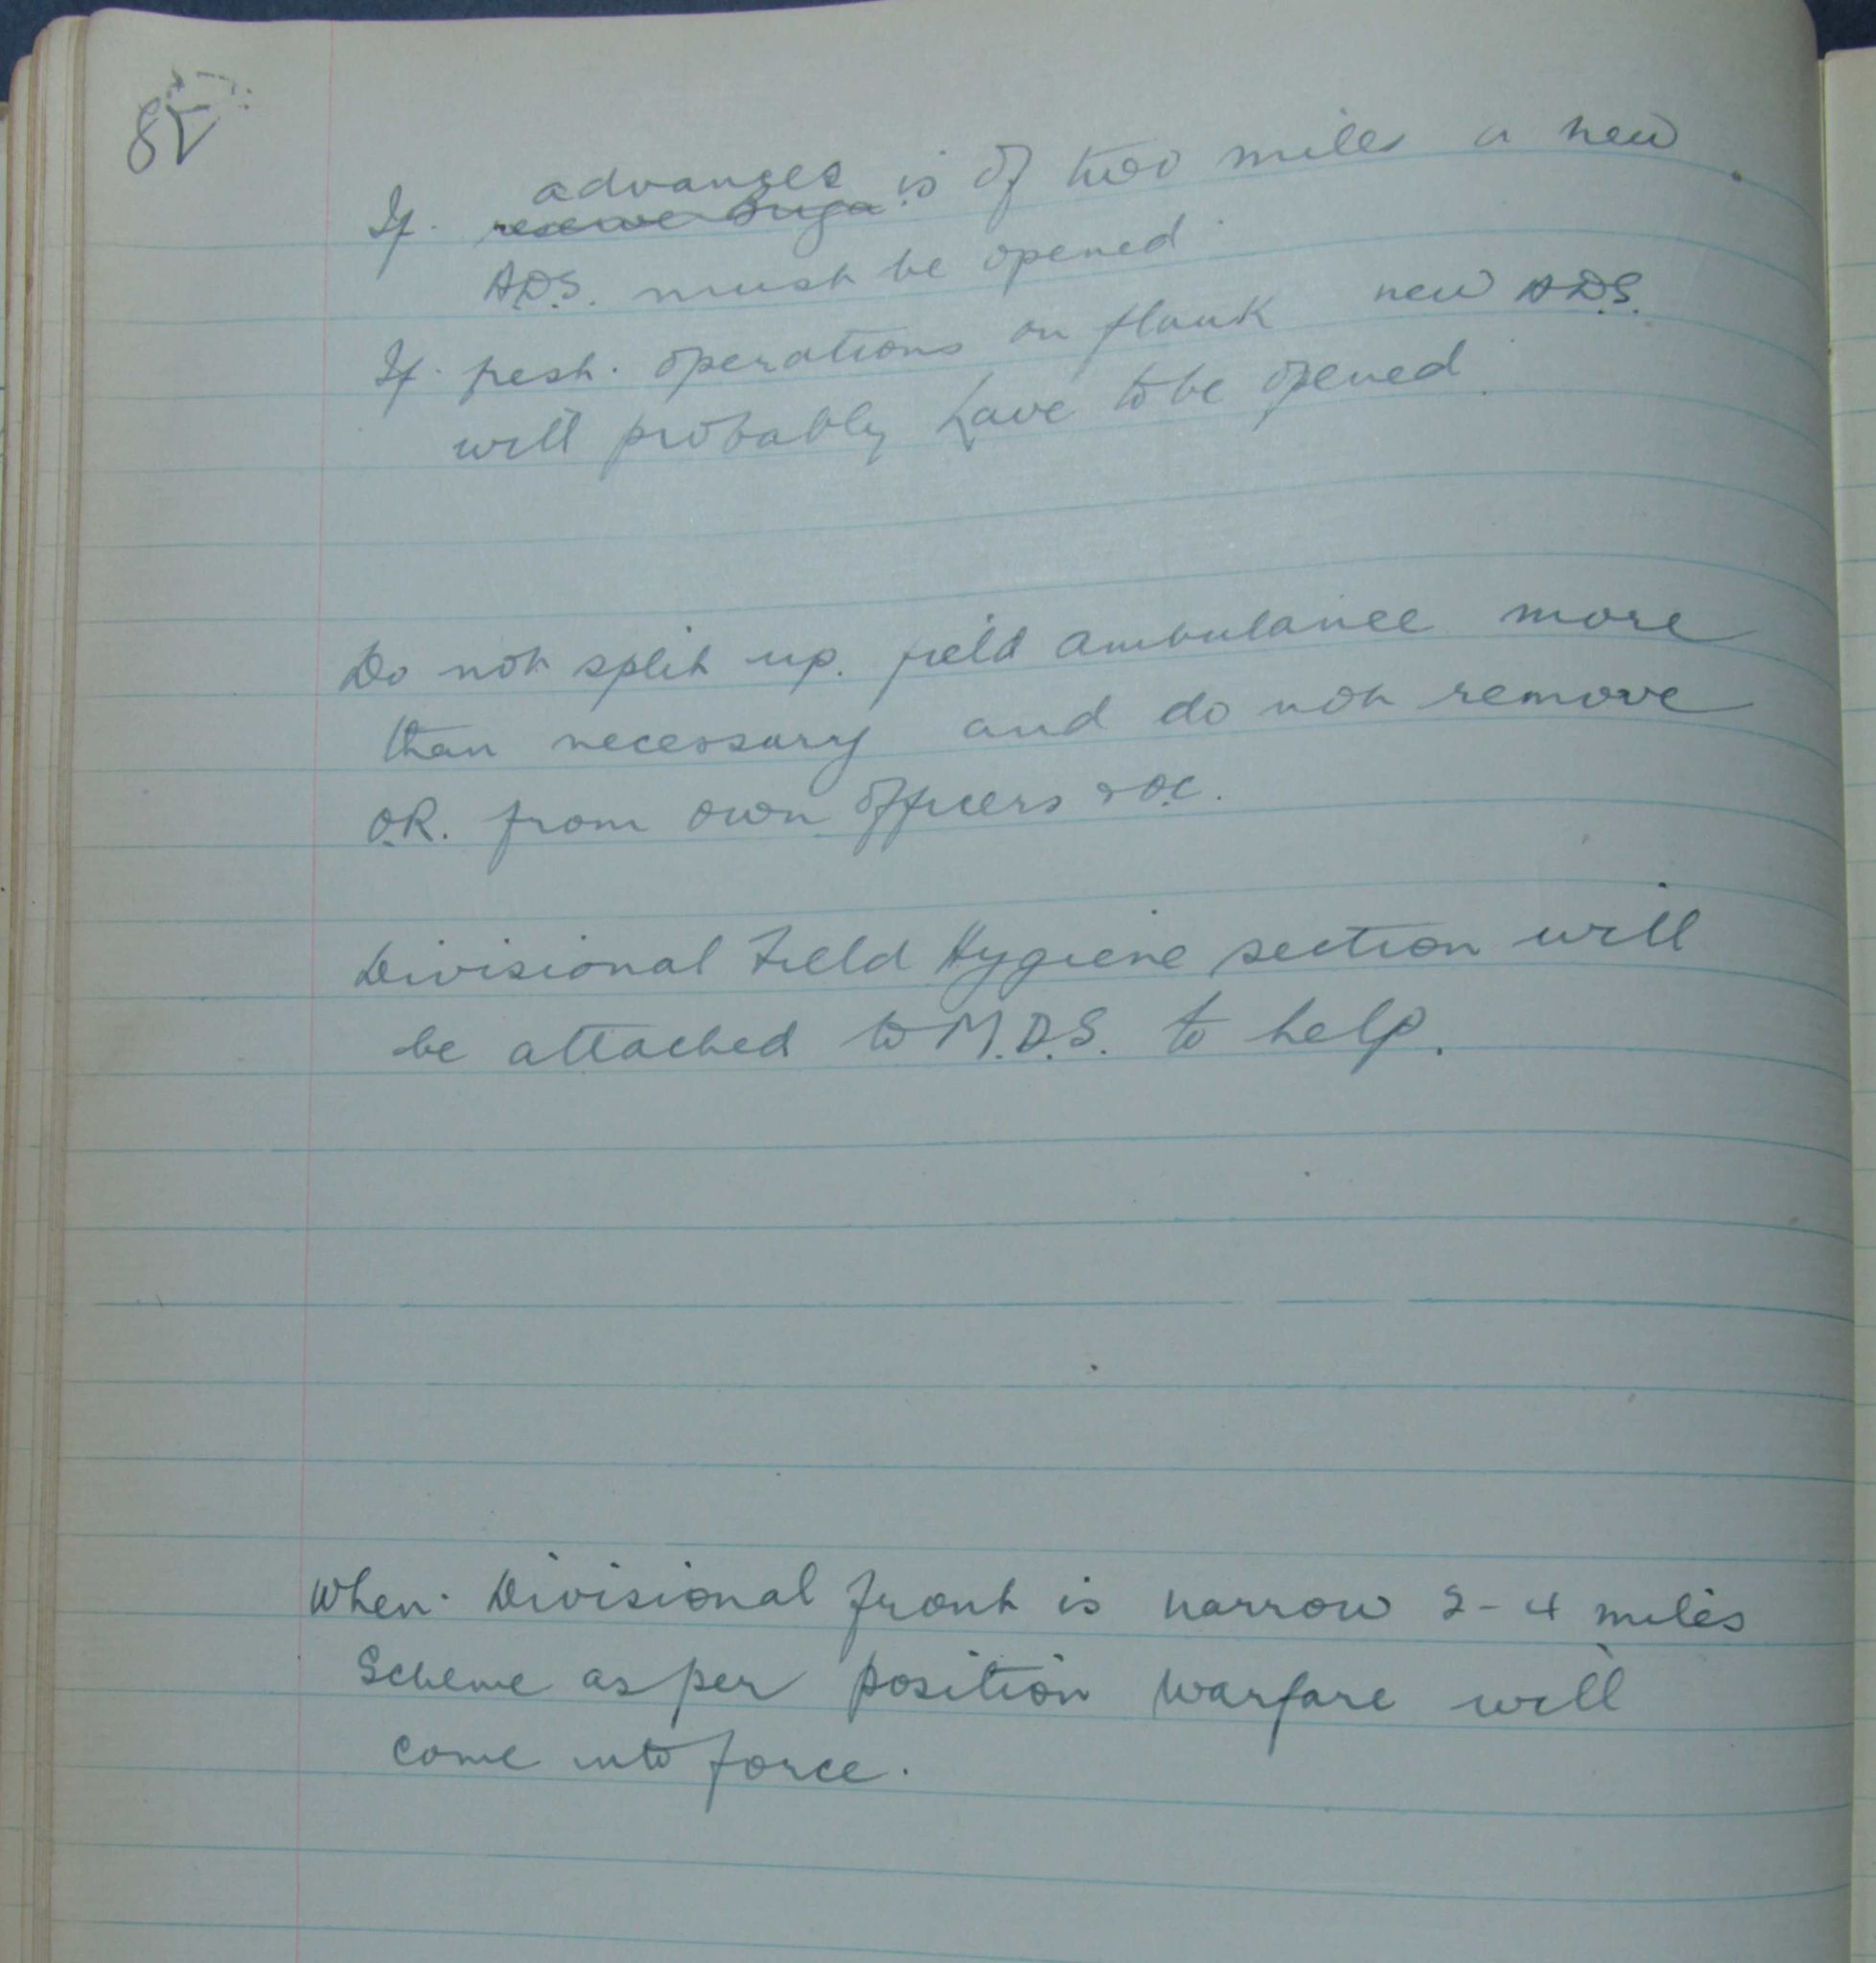 If advances is of two miles a new
reserve Briga
A.D.S. must be opened
If fresh. operations on flank new A.D.S.
will probably have to be opened
Do not split up. field ambulance more
than necessary and do not remove
O.R. from own officers & O.C.
Divisional Field Hygiene section will
be attached to M.D.S. to help.
When. Divisional front is narrow 2-4 miles
Scheme as per position warfare will
come into force.